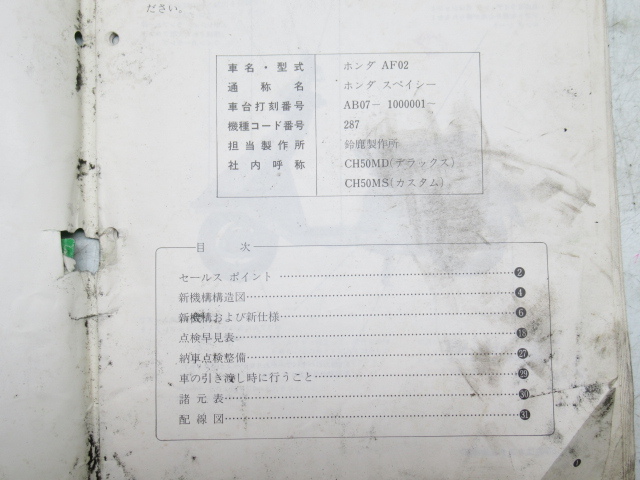 ださい。
車名・型式 ホンダ AF02
通称名 ホンダ スペイシー
車台打刻番号 AB07－1000001－
機種コード番号 287
担当製作所 鈴鹿製作所
社内呼称 CH50MD(デラックス)
CH50MS(カスタム)
目次
セールス ポイント……2
新機構構造図……4
新機構および新仕様……6
点検早見表……18
納車点検整備……27
車の引き渡し時に行うこと……29
諸元表……30
配線図……31